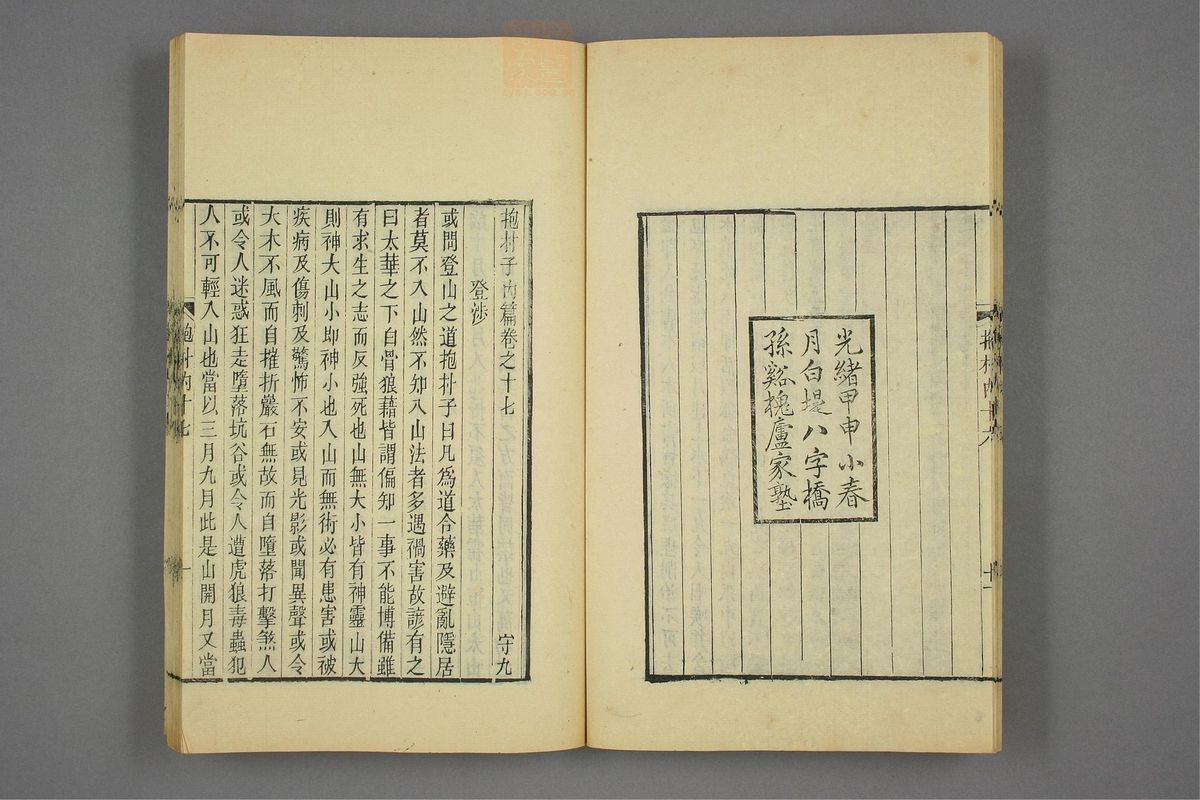 光緒甲申小春
月白堤八字橋
孫谿槐廬家塾
抱朴子內篇卷之十七　守九
登涉
或問登山之道抱朴子曰凡爲道合藥及避亂隱居
者莫不入山然不知入山法者多遇禍害故諺有之
曰太華之下白骨狼藉皆謂偏知一事不能博備雖
有求生之志而反強死也山無大小皆有神靈山大
則神大山小卽神小也入山而無術必有患害或被
疾病及傷刺及驚怖不安或見光影或聞異聲或令
大木不風而自摧折巖石無故而自墮落打擊煞人
或令人迷惑狂走墮落坑谷或令人遭虎狼毒蟲犯
人不可輕入山也當以三月九月此是山開月又當
抱朴內十七
一